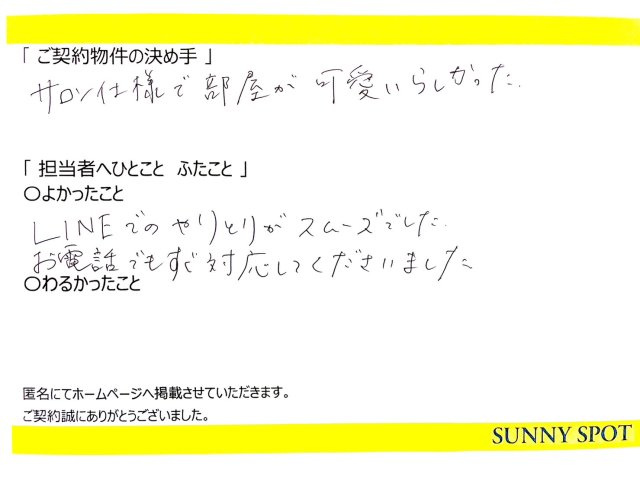 「 ご契約物件の決め手 」
サロン仕様で部屋が可愛いらしかった.
「 担当者へひとこと ふたこと 」
○よかったこと
LINEでのやりとりがスムーズでした.
お電話でもすぐ対応してくださいました
○わるかったこと
匿名にてホームページへ掲載させていただきます。
ご契約誠にありがとうございました。
SUNNY SPOT